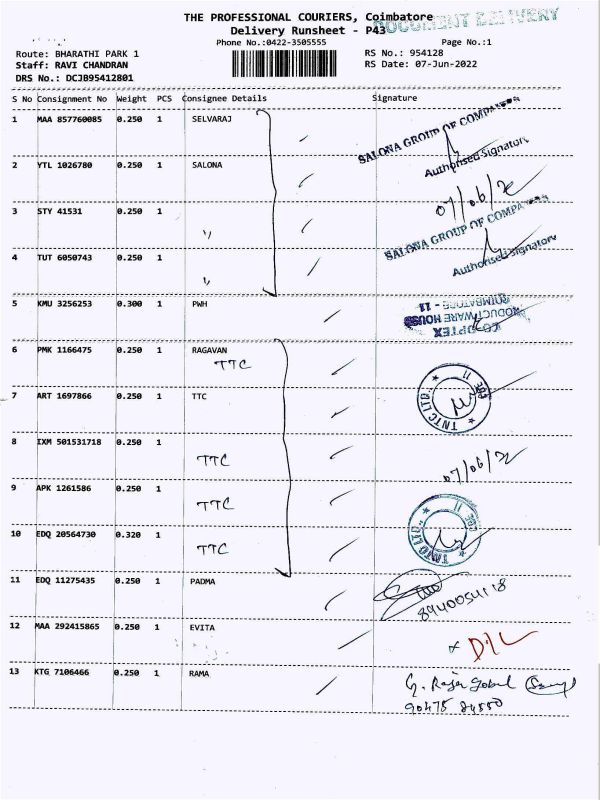 THE PROFESSIONAL COURIERS, Coimbatore
DOCUMENT DELIVERY
Delivery Runsheet - P43
Phone No.:0422-3505555
Page No.:1
Route: BHARATHI PARK 1
RS No.: 954128
Staff: RAVI CHANDRAN
RS Date: 07-Jun-2022
DRS No.: DCJB95412801
S No Consignment No Weight PCS Consignee Details Signature
1 MAA 857760085 0.250 1 SELVARAJ
SALONA GROUP OF COMPANIES
Authorised Signatory
2 YTL 1026780 0.250 1 SALONA
07/06/22
3 STY 41531 0.250 1 〃
SALONA GROUP OF COMPANIES
4 TUT 6050743 0.250 1 〃
Authorised Signatory
5 KMU 3256253 0.300 1 PWH
CO-OPTEX
PRODUCT WARE HOUSE
COIMBATORE - 11
6 PMK 1166475 0.250 1 RAGAVAN
TTC
7 ART 1697866 0.250 1 TTC
TNTC LTD., CBE 11
8 IXM 501531718 0.250 1
TTC
07/06/22
9 APK 1261586 0.250 1
TTC
10 EDQ 20564730 0.320 1
TTC
TNTC LTD., CBE 11
11 EDQ 11275435 0.250 1 PADMA
8940054118
12 MAA 292415865 0.250 1 EVITA
D/L
13 KTG 7106466 0.250 1 RAMA
G. Raja Gobal
90475 84550